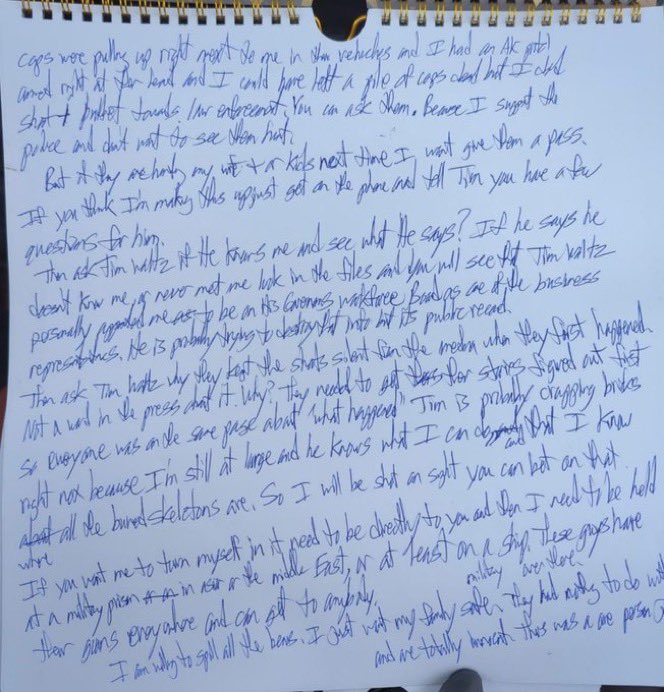 cops were pulling up right next to me in their vehicles and I had an AK pistol
aimed right at their head and I could have left a pile of cops dead but I didn't
shoot 1 bullet towards law enforcement. You can ask them. Because I support the
police and don't want to see them hurt.
But if they are hurting my wife or kids next time I won't give them a pass.
If you think I'm making this up just get on the phone and tell Tim you have a few
questions for him.
Then ask Tim Waltz if He knows me and see what He says? If he says he
doesn't know me, or never met me look in the files and you will see that Tim Waltz
personally appointed me to be on His Governors workforce Board as one of the business
representatives. He is probably trying to destroy that info but its public record.
Then ask Tim Waltz why they kept the shots silent from the media when they first happened.
Not a word in the press about it. Why? They needed to get their stories figured out first
so everyone was on the same page about "what happened" Tim is probably crapping bricks
right now because I'm still at large and he knows what I can and that I know
where all the buried skeletons are. So I will be shot on sight you can bet on that
If you want me to turn myself in it need to be directly to you and then I need to be held
at a military prison in or the middle East, or at least on a ship. These guys have
their goons everywhere and can get to anybody. military over there.
I am willing to spill all the beans. I just want my family safe. They had nothing to do with
and are totally innocent. This was a one person